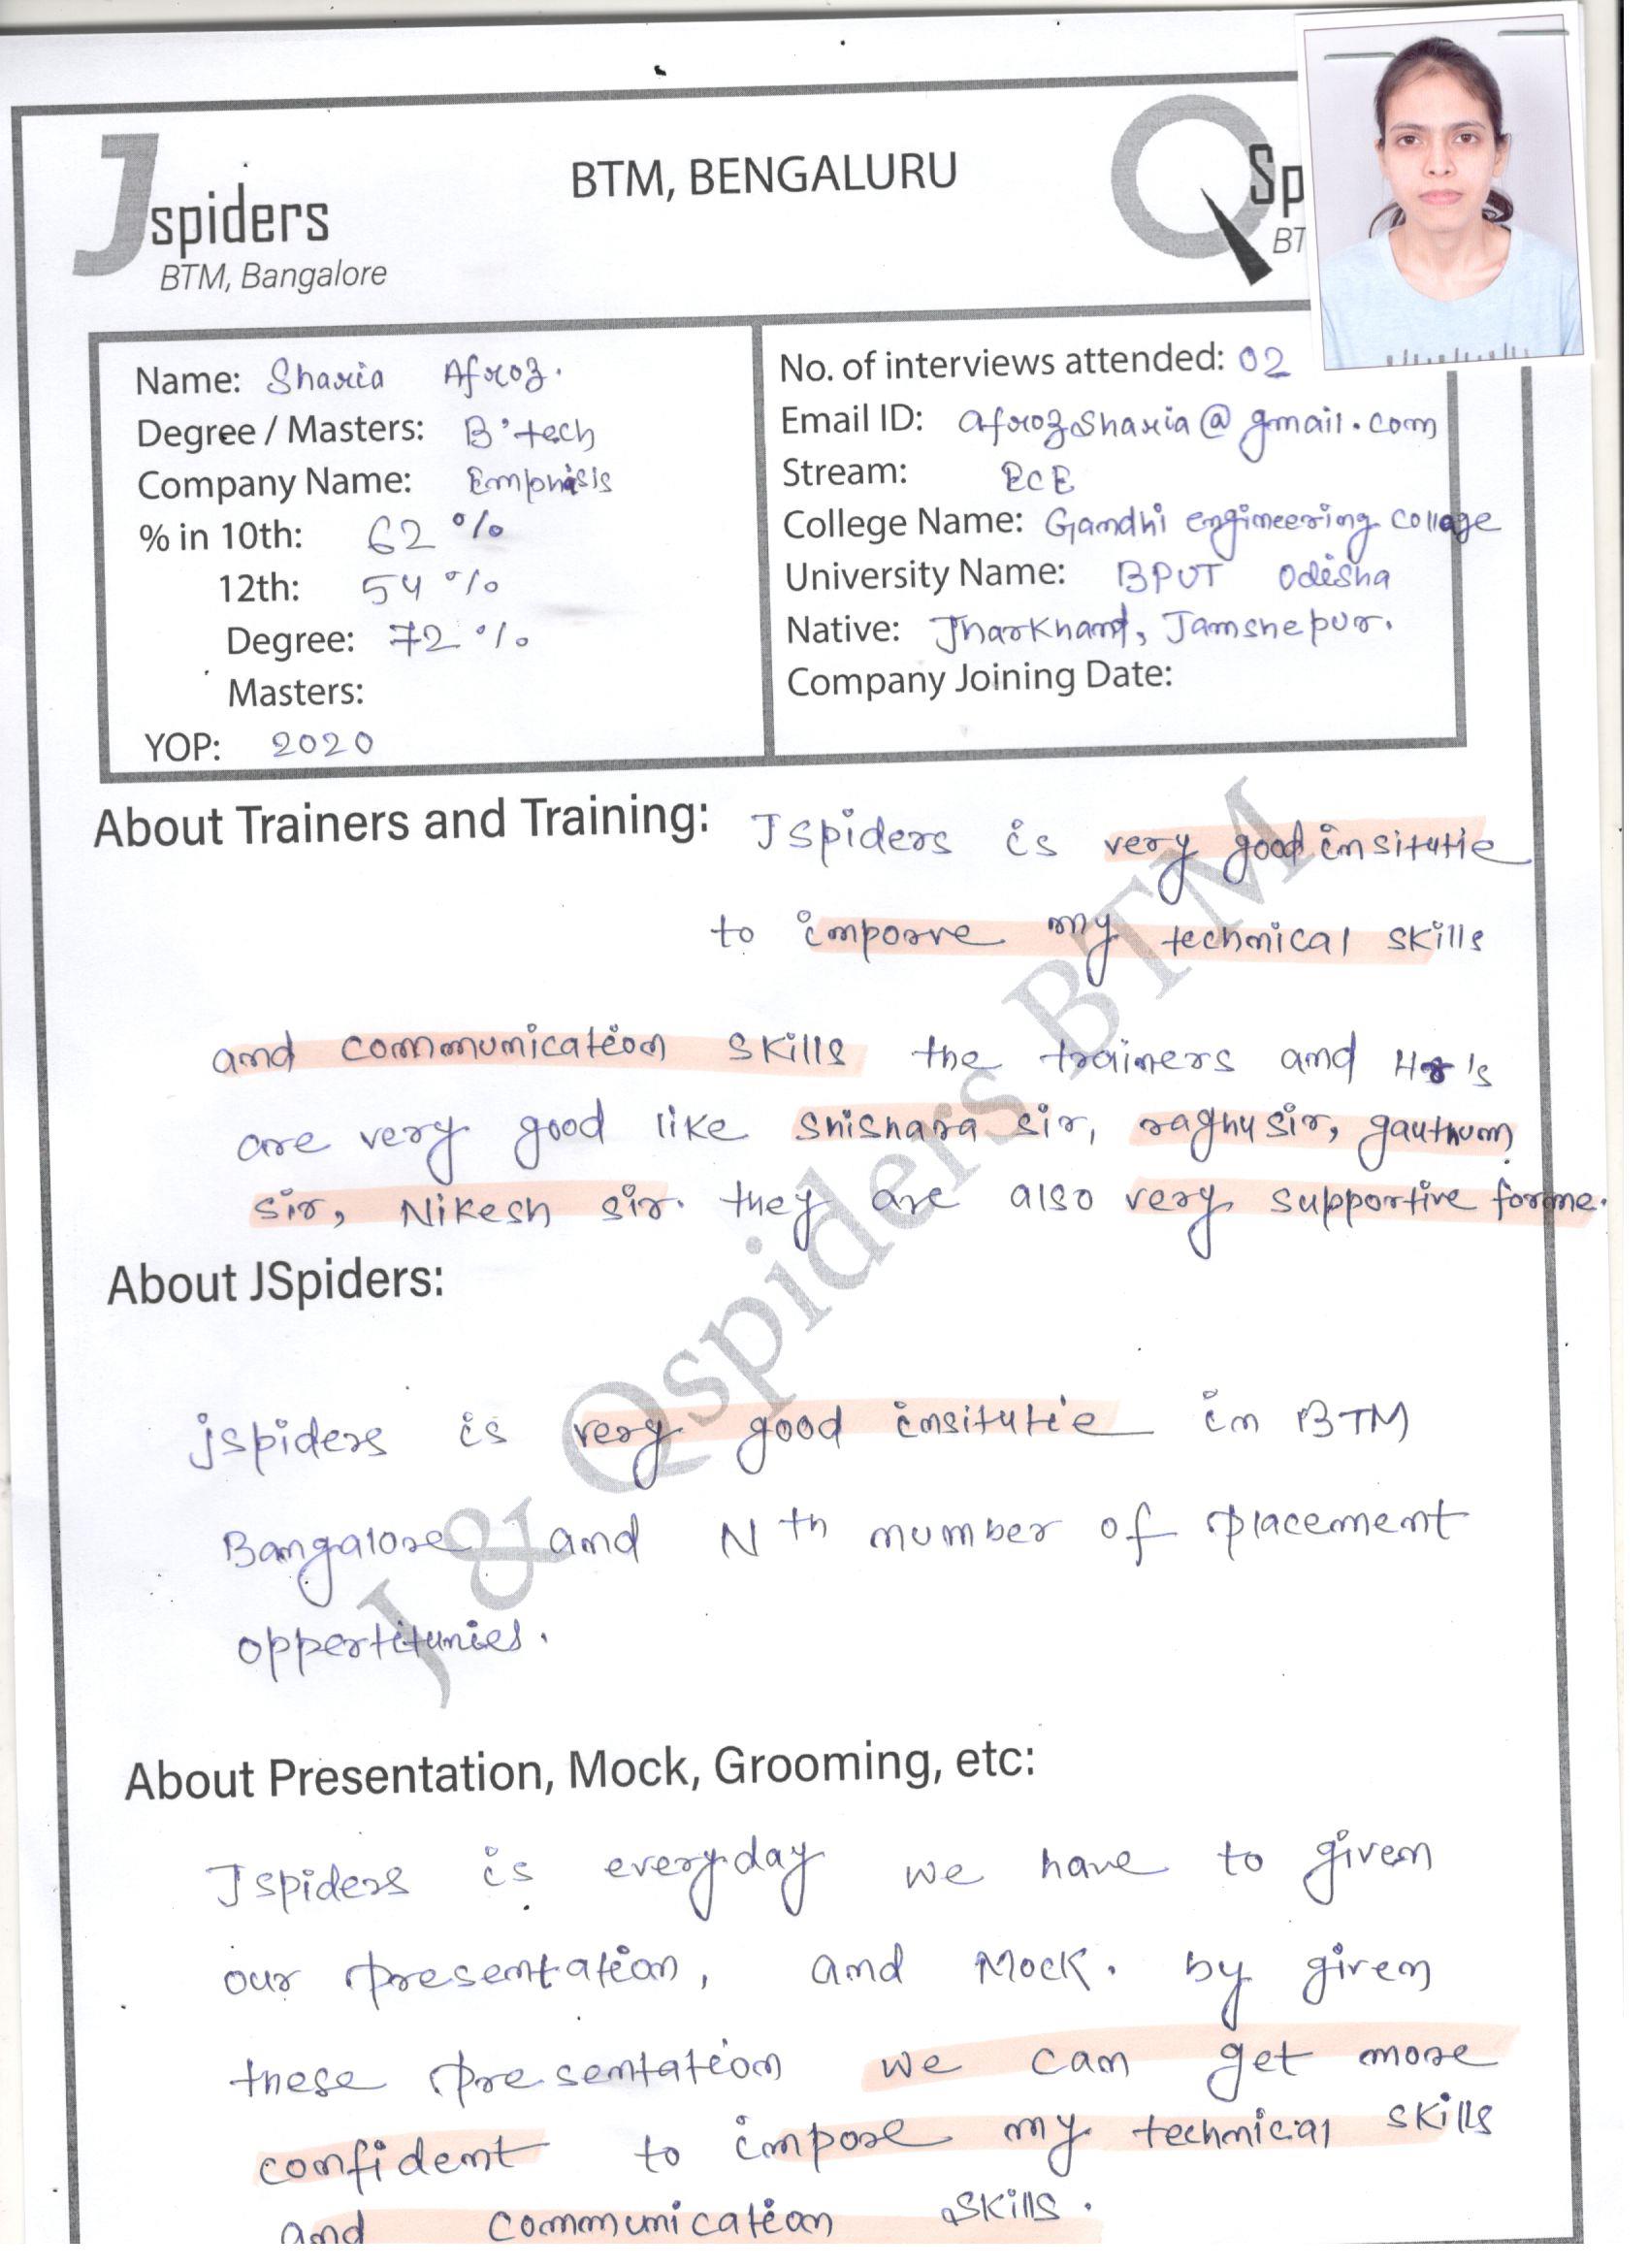 Jspiders
BTM, Bangalore
BTM, BENGALURU
QSp
BT
Name: Sharia Afroz.
Degree / Masters: B'tech
Company Name: Emphisis
% in 10th: 62 %
12th: 54 %
Degree: 72 %
Masters:
YOP: 2020
No. of interviews attended: 02
Email ID: afrozsharia@gmail.com
Stream: ECE
College Name: Gandhi engineering college
University Name: BPUT Odisha
Native: Jharkhand, Jamshepur.
Company Joining Date:
About Trainers and Training: Jspiders is very good insitutie
to imporve my technical skills
and communication skills the trainers and Hr's
are very good like shishara sir, raghu sir, gauthum
sir, Nikesh sir. they are also very supportive for me.
About JSpiders:
jspiders is very good insitutie in BTM
Bangalore and Nth number of placement
oppertitunies.
About Presentation, Mock, Grooming, etc:
Jspiders is everyday we have to given
our presentation, and Mock. by given
these presentation we can get more
confident to impose my technical skills
and communication skills.
J & Qspiders BTM